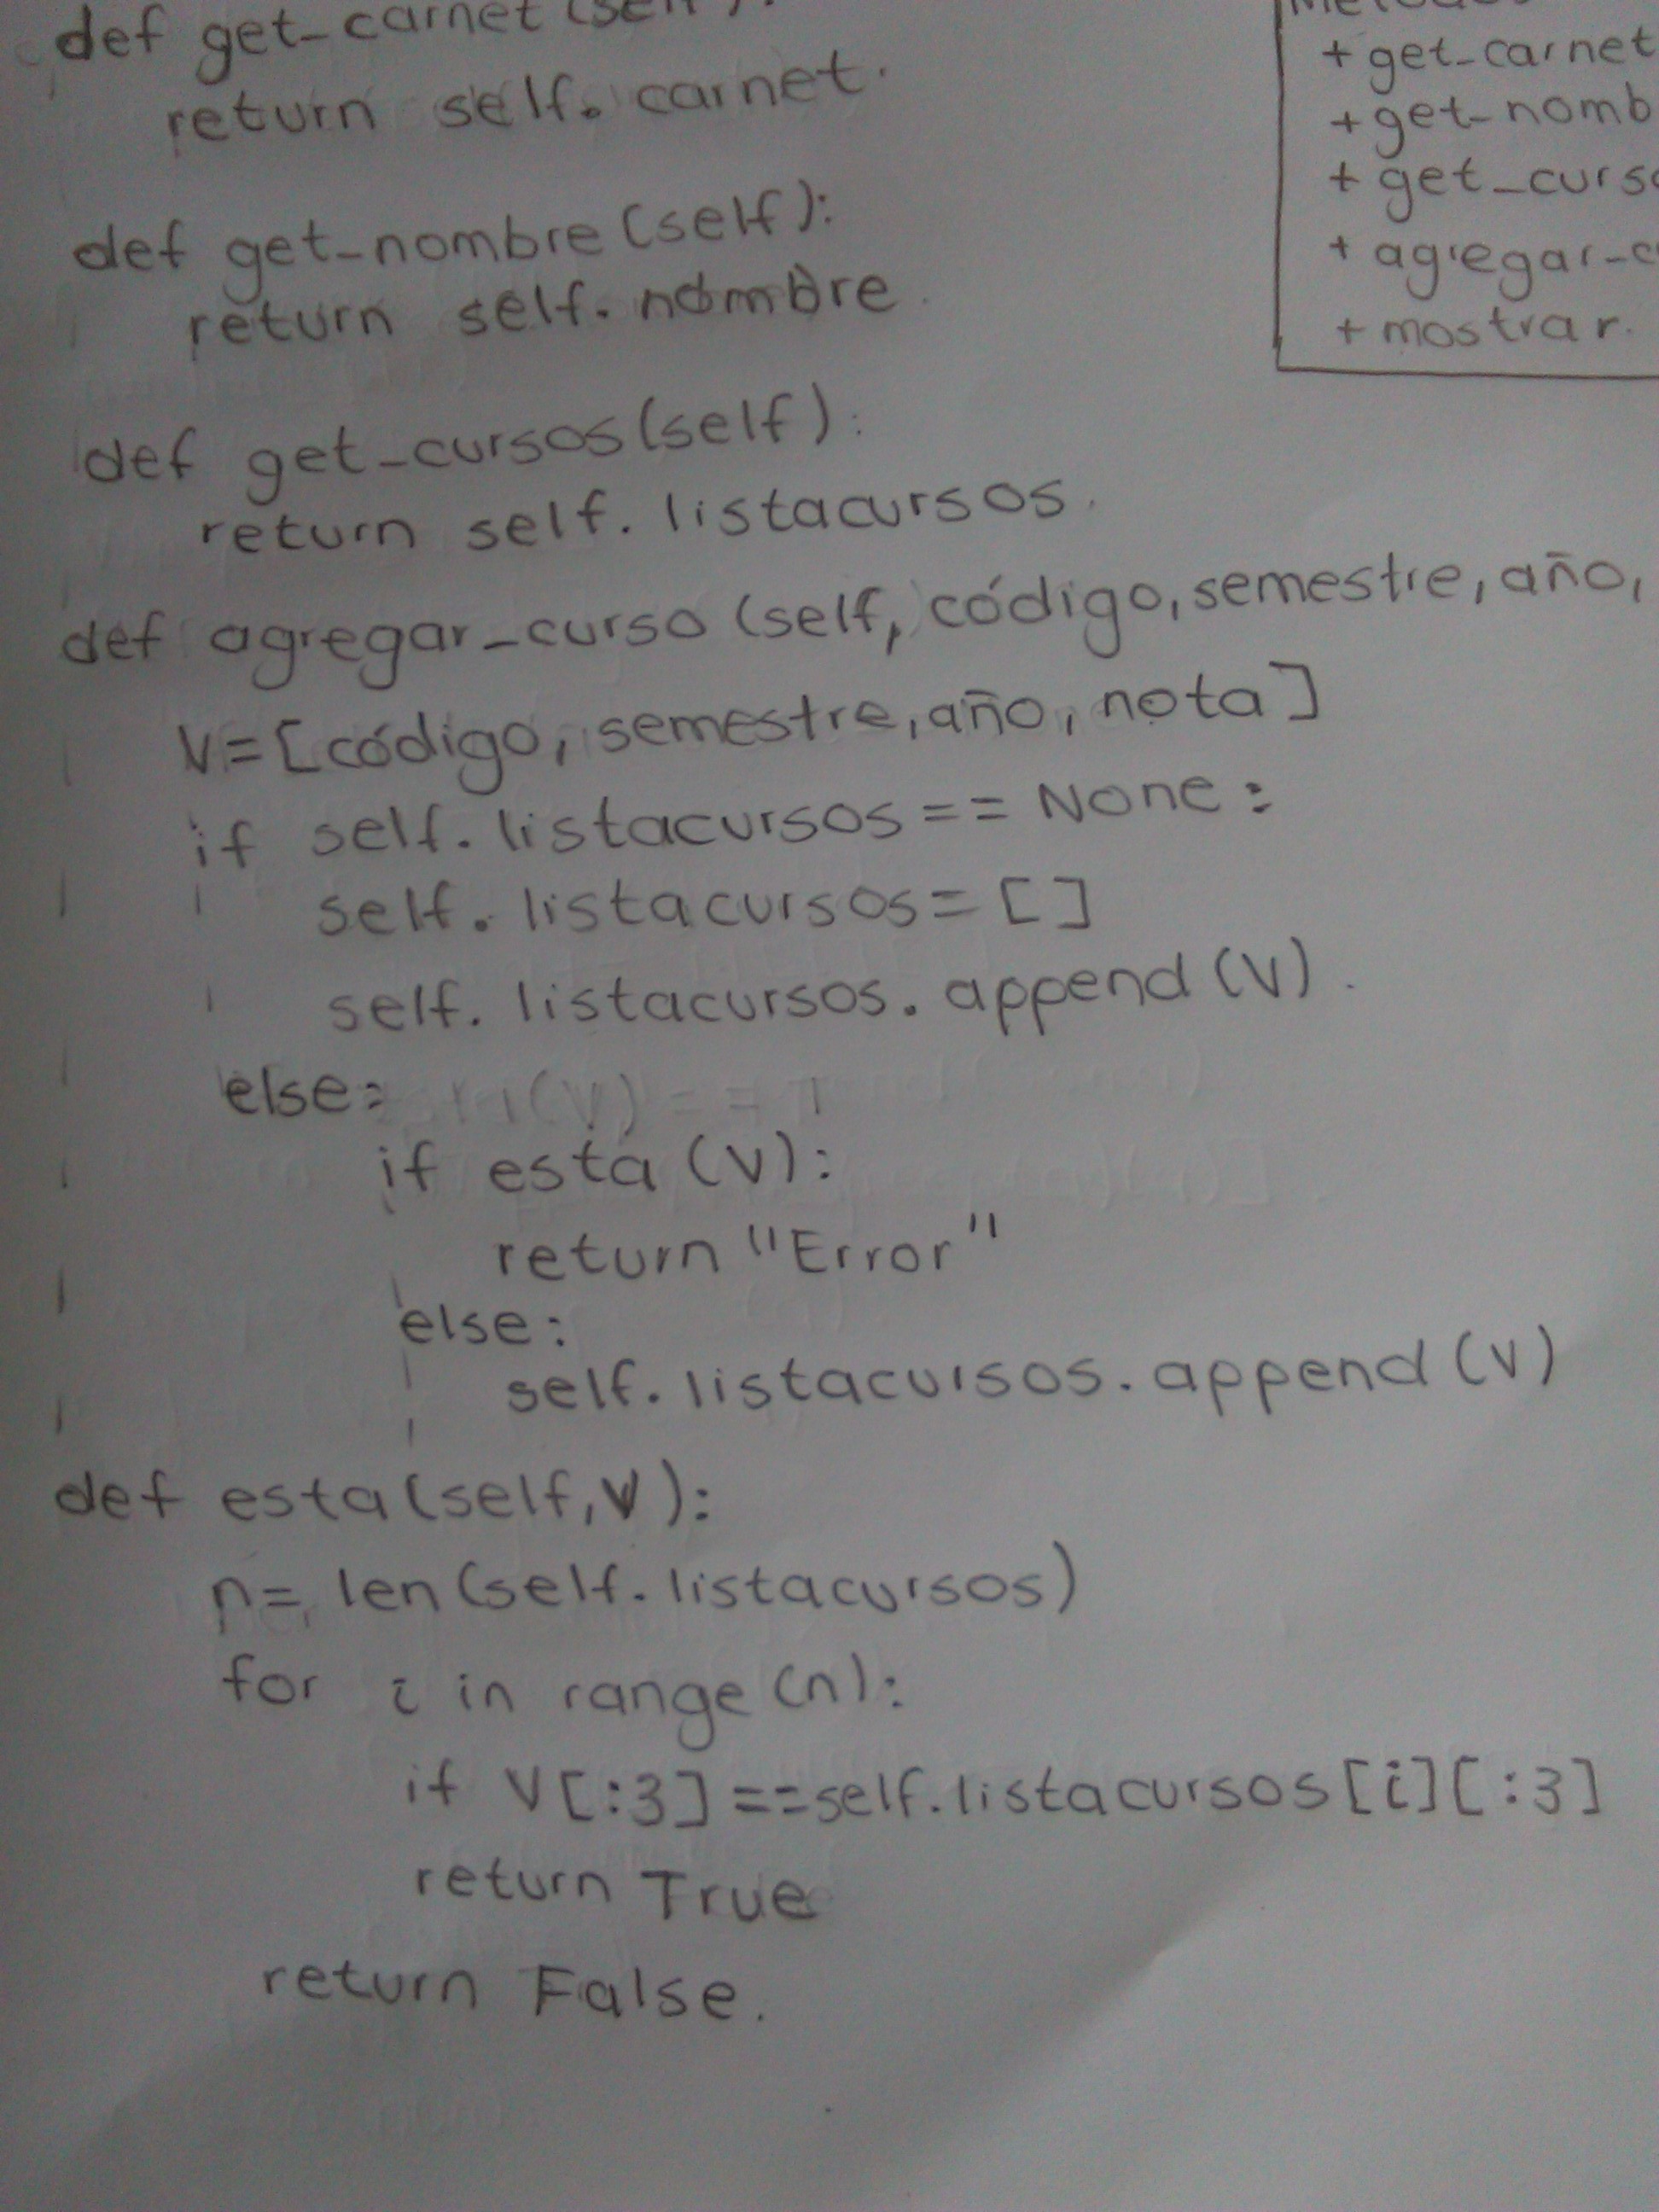 def get_carnet (self):
return self. carnet.
def get_nombre (self):
return self. nombre.
def get_cursos (self):
return self. listacursos.
def agregar_curso (self, código, semestre, año,
V=[código, semestre, año, nota]
if self. listacursos == None:
self. listacursos = []
self. listacursos. append (V).
else:
if esta (V):
return "Error"
else:
self. listacursos. append (V)
def esta (self, V):
n= len (self. listacursos)
for i in range (n):
if V[:3] ==self. listacursos [i][:3]
return True
return False.
+ get_carnet
+ get_nomb
+ get_curso
+ agregar_c
+ mostrar.